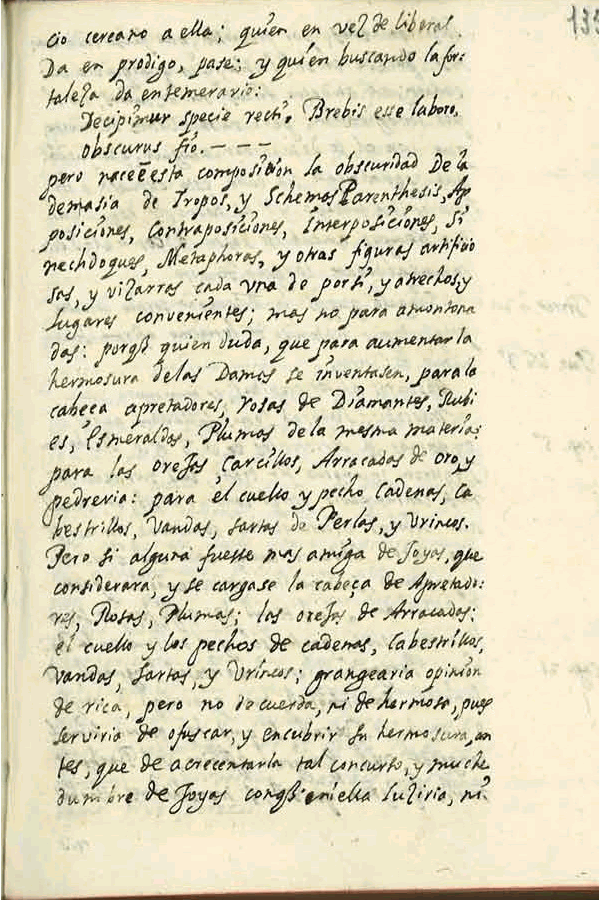 133
cio cercano a ella; quien en vez de liberal
Da en prodigo, pase; y quien buscando la for:
taleza da en temerario:
Decipimur specie recti. Brebis esse laboro,
obscurus fio. - - -
pero nace esta composicion la obscuridad De la
demasia de Tropos, y Schemas Parenthesis, Ap
posiciones, Contraposiciones, Interposiciones, Si
nechdoques, Metaphoras, y otras figuras artificio
sas, y vizarras cada una de por si, y a trechos, y
lugares convenientes; mas no para amontona
das: porq̃ quien duda, que para aumentar la
hermosura de las Damas se inventasen, para la
cabeca apretadores, rosas de Diamantes, Rubi
es, Esmeraldas, Plumas de la mesma materia:
para las orejas Çarcillos, Arracadas de oro, y
pedreria: para el cuello y pecho Cadenas, Ca
bestrillos, Vandas, sartas de Perlas, y Vrincos.
Pero si alguna fuesse mas amiga de Joyas, que
considerara, y se cargase la cabeça de Apretado:
res, Rosas, Plumas; las orejas de Arracadas;
el cuello y los pechos de cadenas, Cabestrillos,
Vandas, Sartas, y Vrincos; grangearia opinion
de rica, pero no de cuerda, ni de hermosa, pues
serviria de ofuscar, y encubrir su hermosura, an
tes, que de acrecentarla tal concurso, y muche
dumbre de Joyas conq̃ en ella luziria, ni